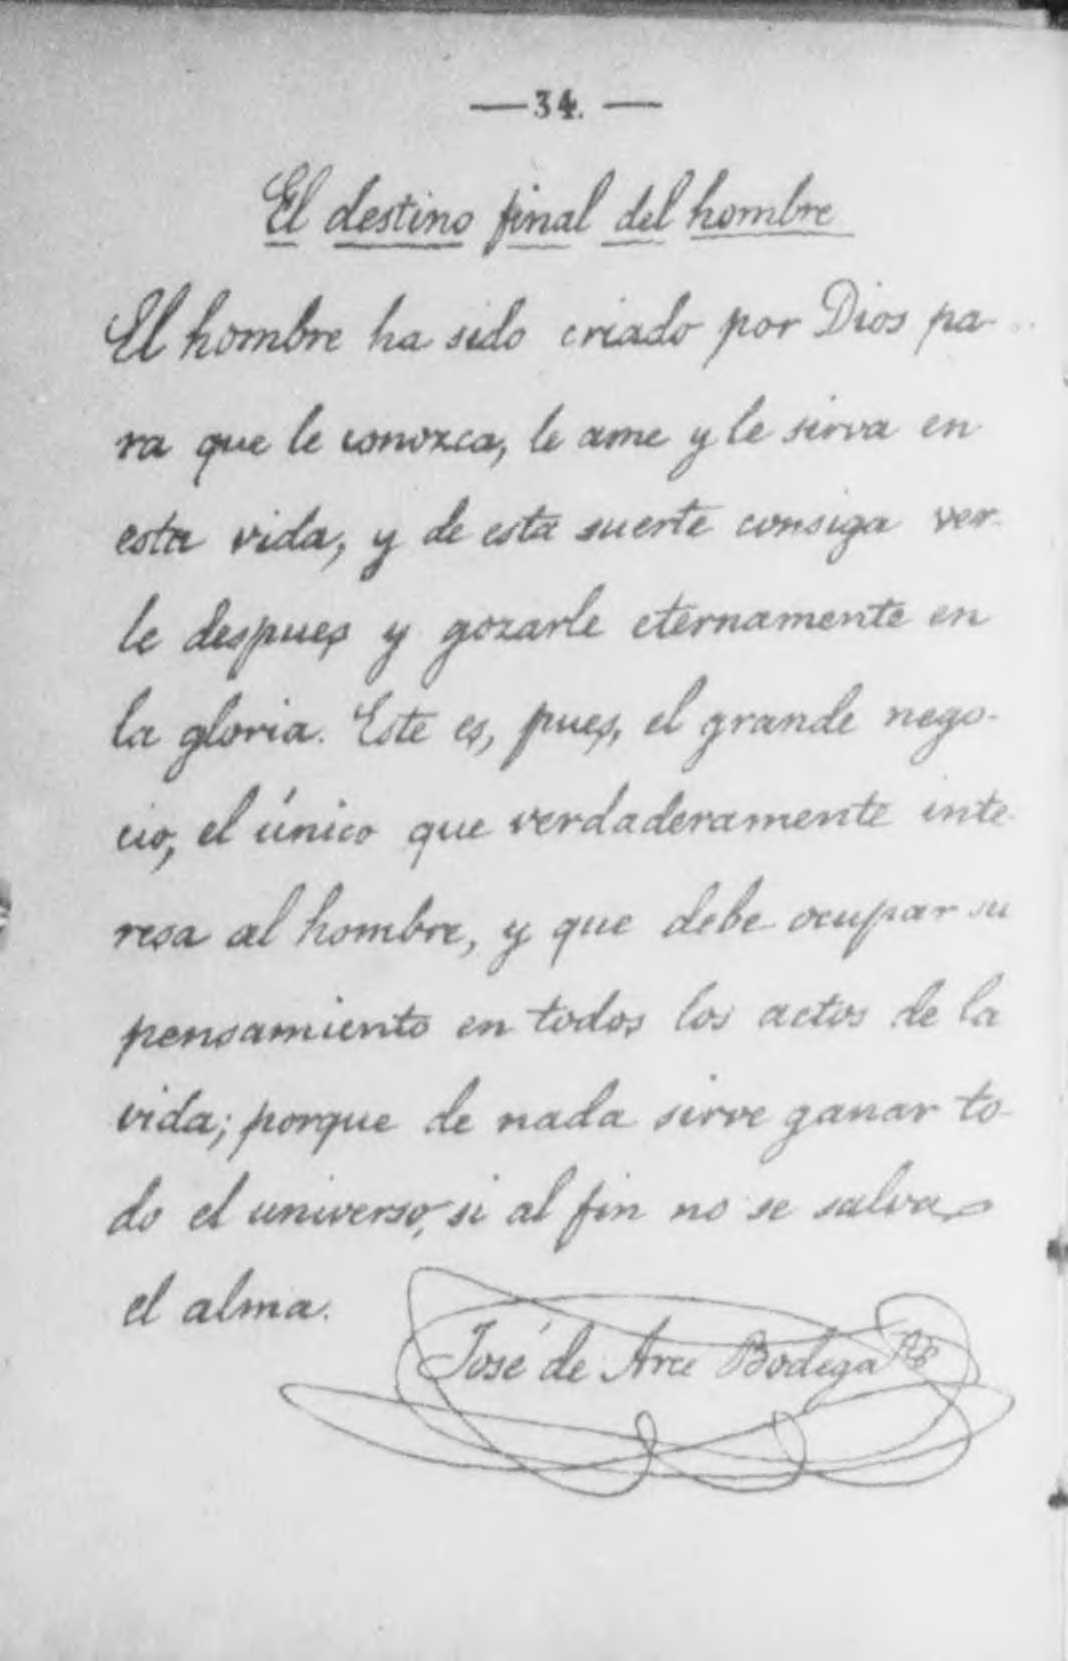 —34.—
El destino final del hombre
El hombre ha sido criado por Dios pa-
ra que le conozca, le ame y le sirva en
esta vida, y de esta suerte consiga ver-
le despues y gozarle eternamente en
la gloria. Este es, pues, el grande nego-
cio, el único que verdaderamente inte-
resa al hombre, y que debe ocupar su
pensamiento en todos los actos de la
vida; porque de nada sirve ganar to-
do el universo, si al fin no se salva
el alma.
José de Arce Bodega